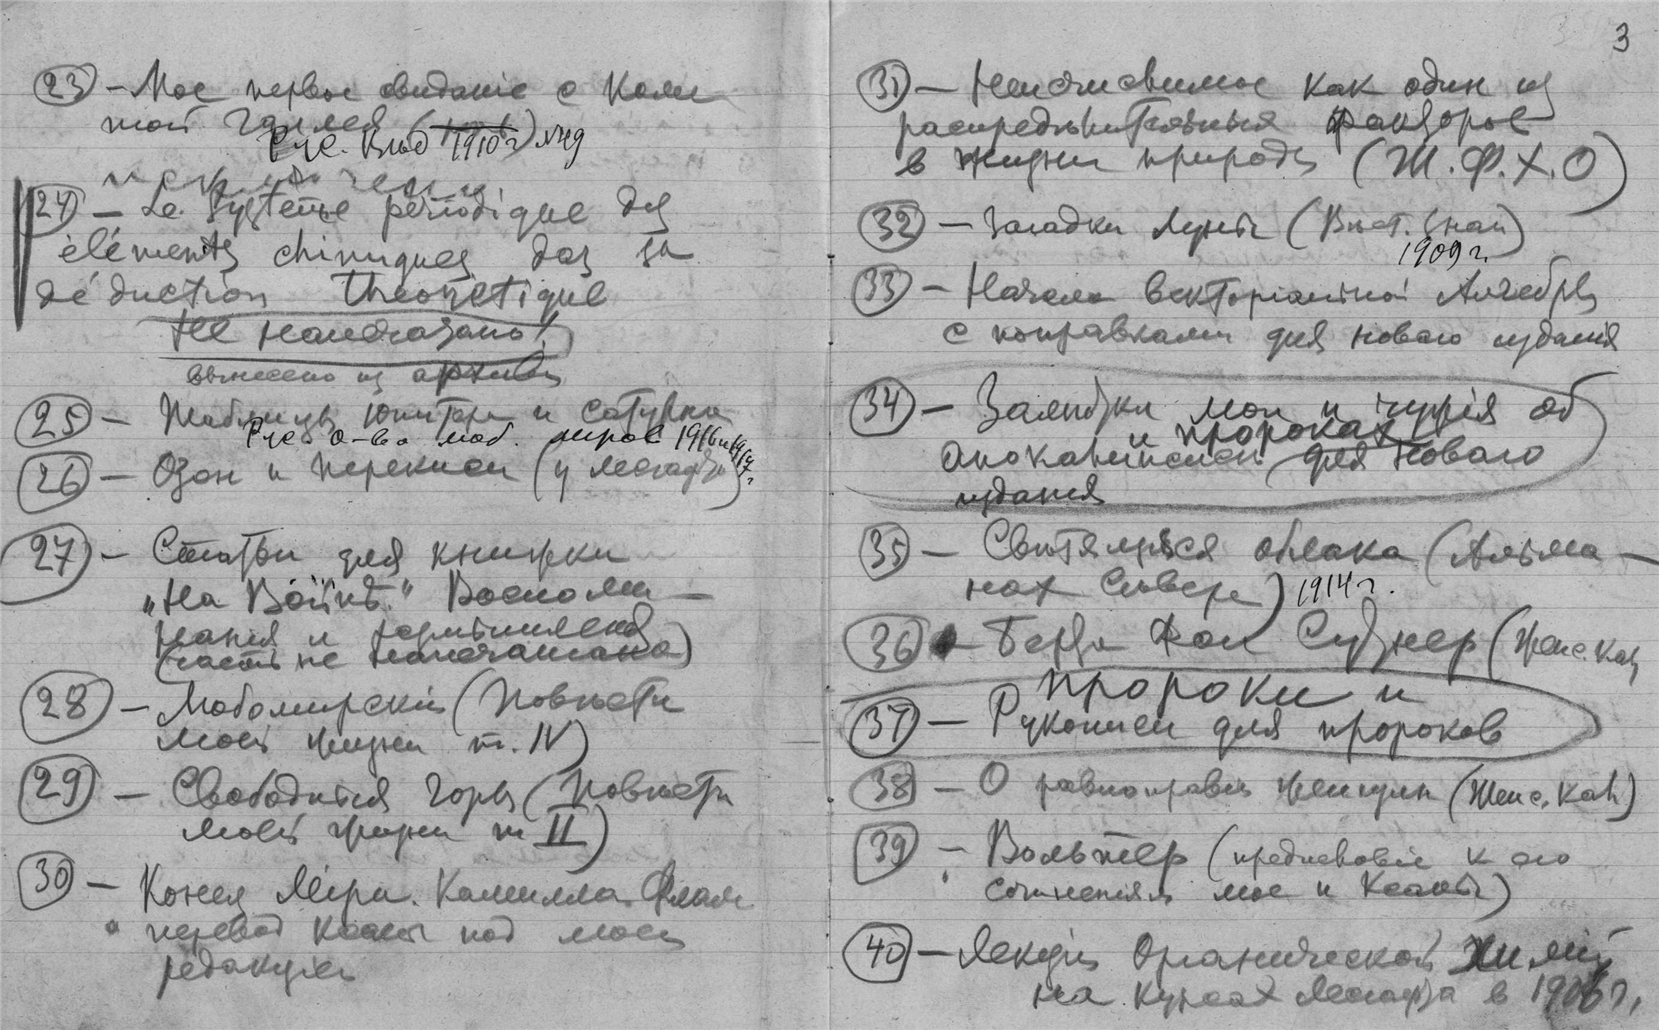 23 – Мое первое свидание с Коме
той Галлея (1910 г)
Рус. Вѣд 1910 г
24 – Le Système périodique des
éléments chimiques das sa
déduction théoretique
Не напечатано!
вынесено из архива
25 – Таблицы Юпитера и Сатурна
Рус о-во люб. миров 1916 и 1917 г
26 – Озон и перекиси (у Лесгафта)
27 – Статьи для книжки
„На Войнѣ." Воспоми –
нания и размышления
(часть не напечатана)
28 – Любомирскій (Повѣсти
моей жизни т. IV)
29 – Свободныя горы (Повѣсти
моей жизни т II)
30 – Конец Мира. Камилла Флам
перевод Ксаны под моей
редакціей
3
31 – Неисчислимое как один из
распредѣлительных факторов
в жизни природы (Ж.Ф.Х.О)
32 – Загадки Луны (Вѣст. Знан)
1909 г.
33 – Начала векторіальной Алгебры
с поправками для новаго изданія
34 – Замѣтки мои и чужія об
и пророках
Апокалипсисѣ для новаго
изданія
35 – Свѣтящіяся облака (Альма –
нах Сѣвера) 1914 г.
36 – Берта фон Сутнер (Женс. кал
пророки и
37 – Рукописи для пророков
38 – О равноправіи женщин (Женс. кал)
39 – Вольтер (предисловіе к его
сочиненіям мое и Ксаны)
40 – Лекціи Органической Химіи
на курсах Лесгафта в 1906 г.